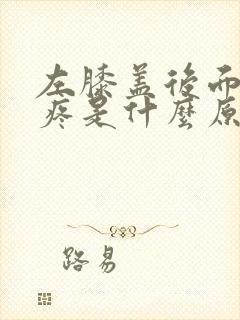 左膝盖后面
疼是什麼原
路易